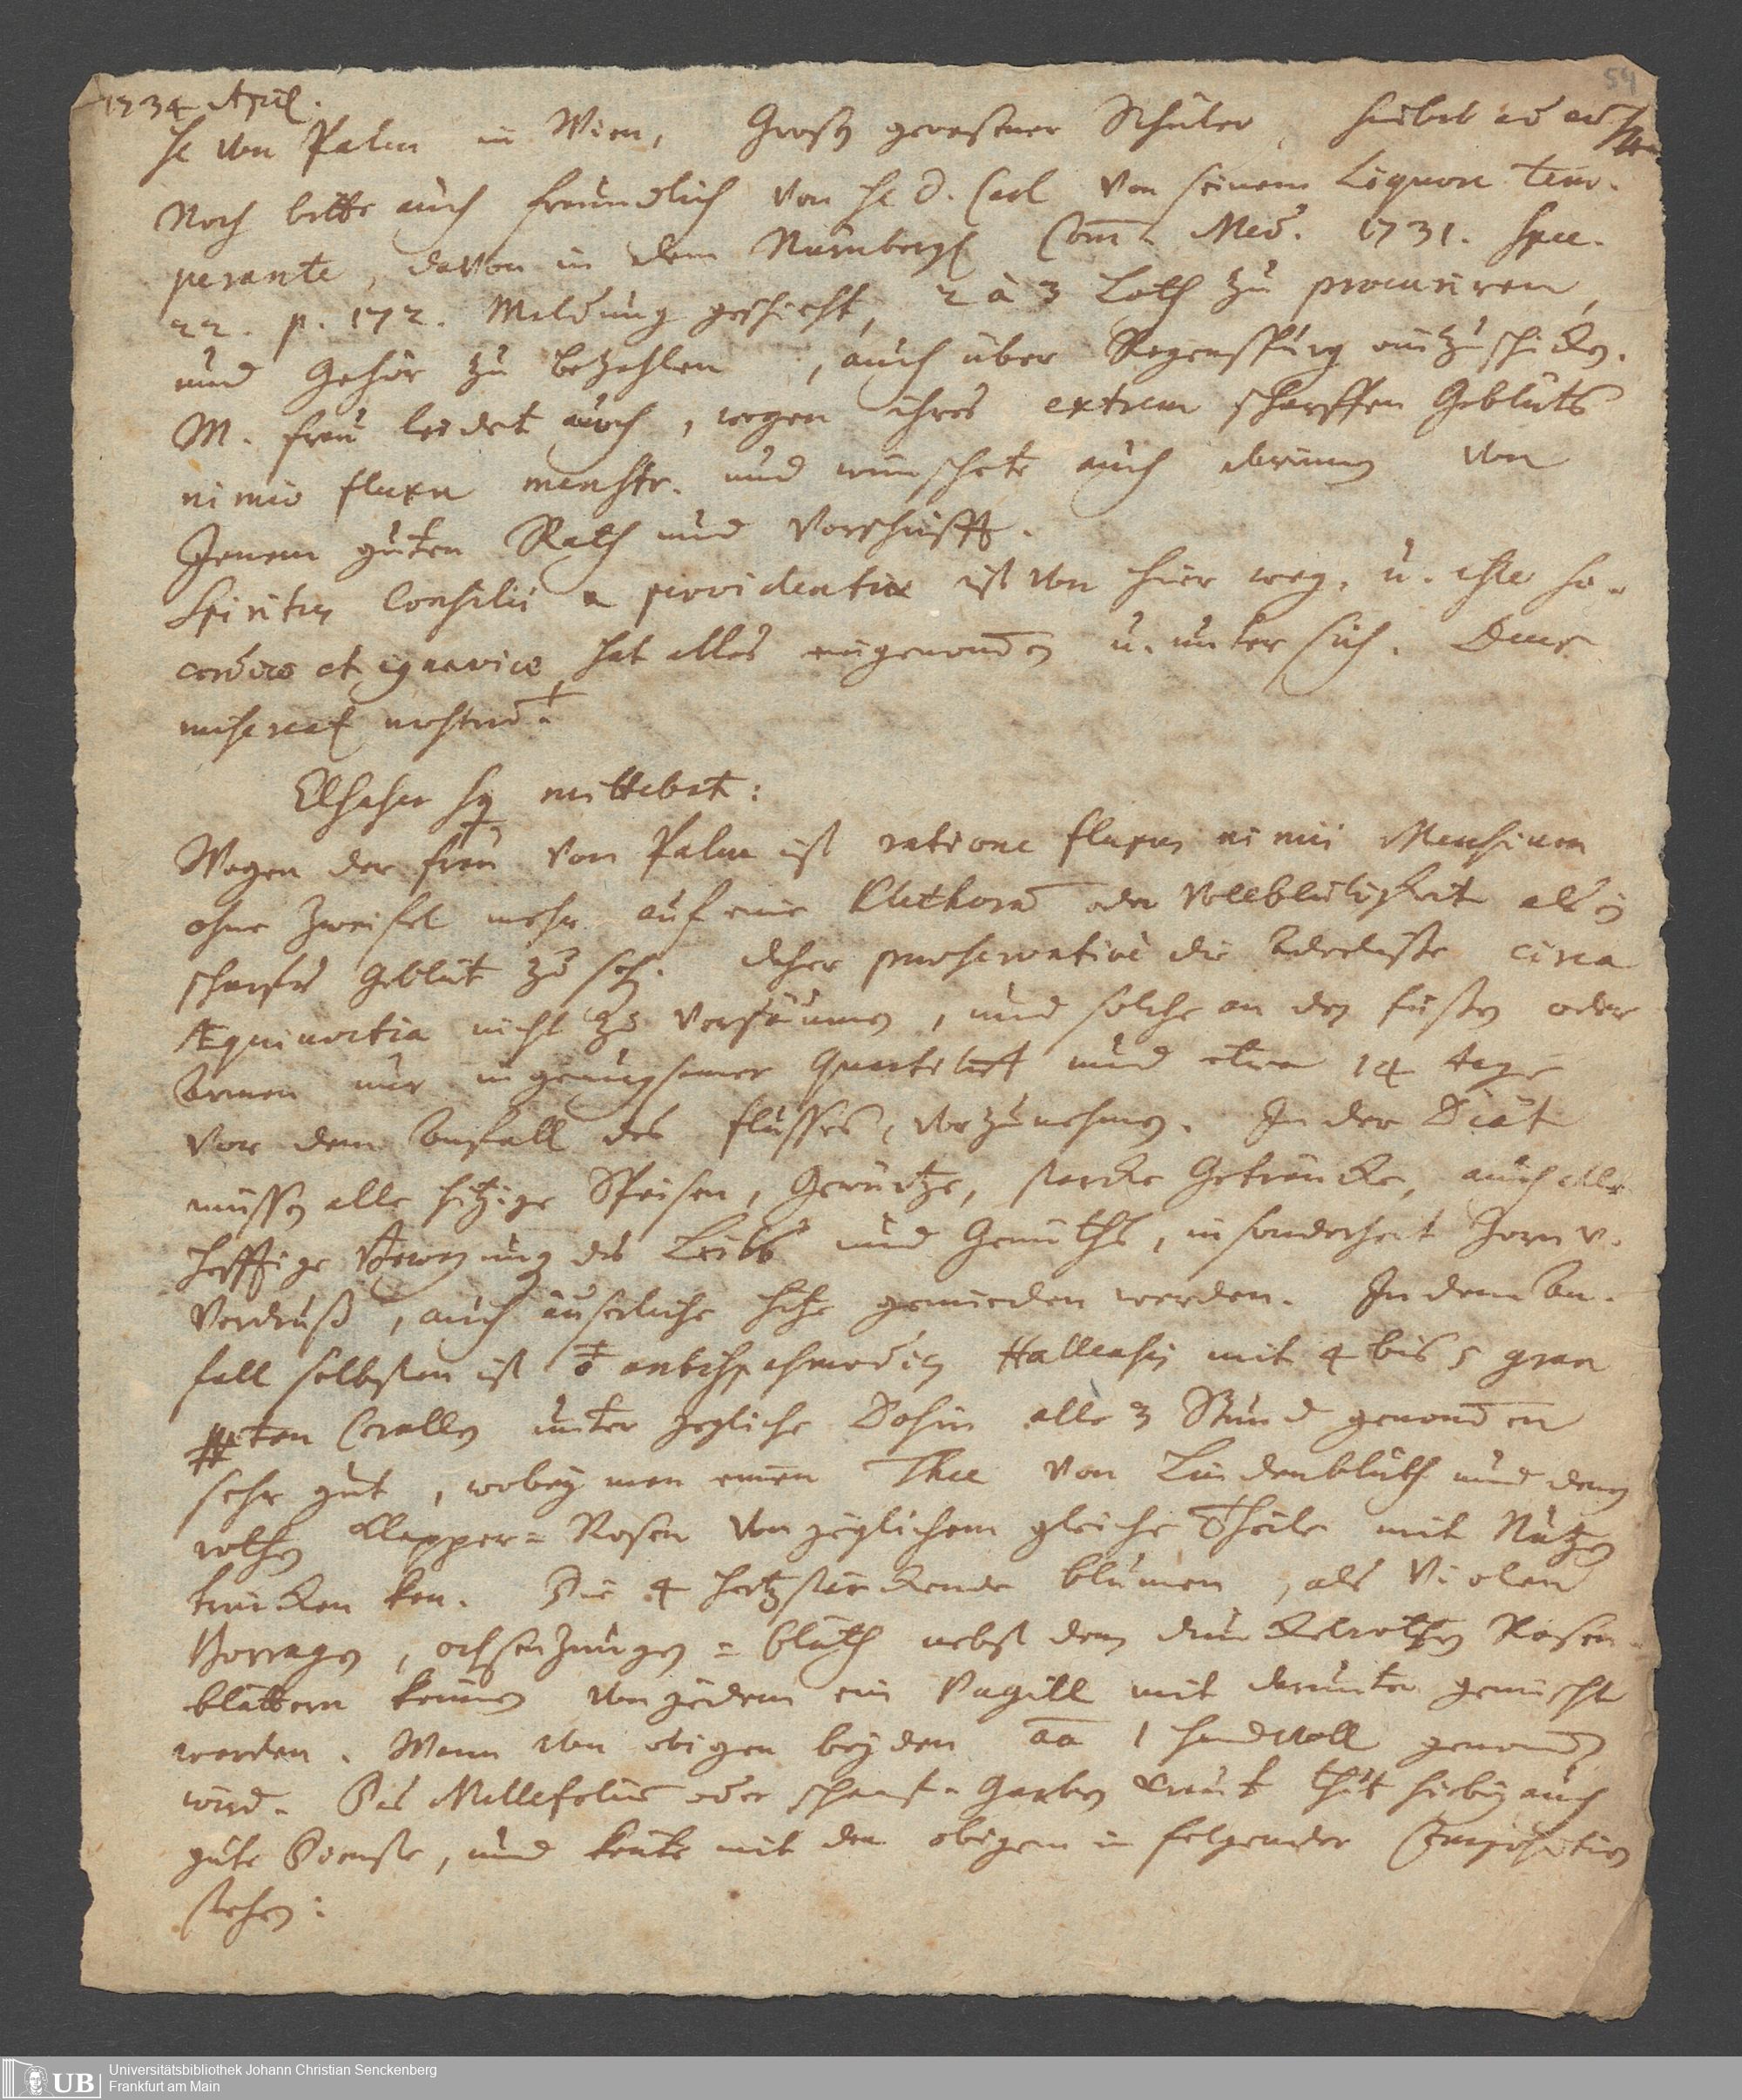 54
1734 April.
H. von Palm in Wien, Groß gewesener Schüler,
Noch bitte auch freundlich von H. D. Carl von seinem Liquore tem-
perante, davon in dem Nürnberg. Com. Med. 1731. Spec.
22. p. 172. Meldung geschieht, 2 à 3 Loth zu procuriren,
und Gehör zu bezahlen, auch über Regenspurg zuschicken.
M. Frau leidet auch, wegen ihres extrem scharffen Geblüts
nimio fluxu menstr. und wünschete auch darinnen von
Jenem guten Rath und Vorschuss.
Spiritus Consilii & providentiæ ist von hier weg, u.
et ignaviæ hat alles eingenommen u. unter sich. Deus
misereat nostrum.
Elsasser mittebat:
Wegen der Frau von Palm ist ratione fluxus nimii Mensium
ohne Zweifel mehr auf eine Plethoram oder Vollblütigkeit als
scharfes Geblüt zu seh. Daher præservative die Aderlässe circa
Æquinoctia nicht zu versäumen, und solche an den Füßen oder
Armen nur in genugsamer Quantität und etwa 14 tage
vor dem Anfall des Flusses, vorzunehmen. In der Diät
müssen alle hitzige Speisen, Gewürtze, starcke Geträncke, auch alle
hefftige Bewegung des Leibs und Gemüths, insonderheit Zorn u.
Verdruß, auch äuserliche Hitze gemieden werden. In dem An-
fall selbsten ist antispasmodic Hallensis mit 4 bis 5 gran
Corallen unter jegliche Dosin alle 3 Stund genommen
sehr gut, wobey man einen Thee von Lindenblüth und den
rothen Klapper-Rosen von jeglichem gleiche Theile mit Nutzen
trincken kan. Die 4 hertzstärckende blumen, als Violen
Borragen, ochsenzungen-blüth nebst den dunckelrothen Rosen-
blättern können von jedem ein Pugill mit darunter gemischt
werden. Wann von obigen beyden aa 1 handvoll genommen
wird. Das Millefolium oder Schaaf-Garben Kraut thut hiebey auch
gute Dienste, und könte mit den obigem in folgender Composition
stehen:
UB Universitätsbibliothek Johann Christian Senckenberg
Frankfurt am Main